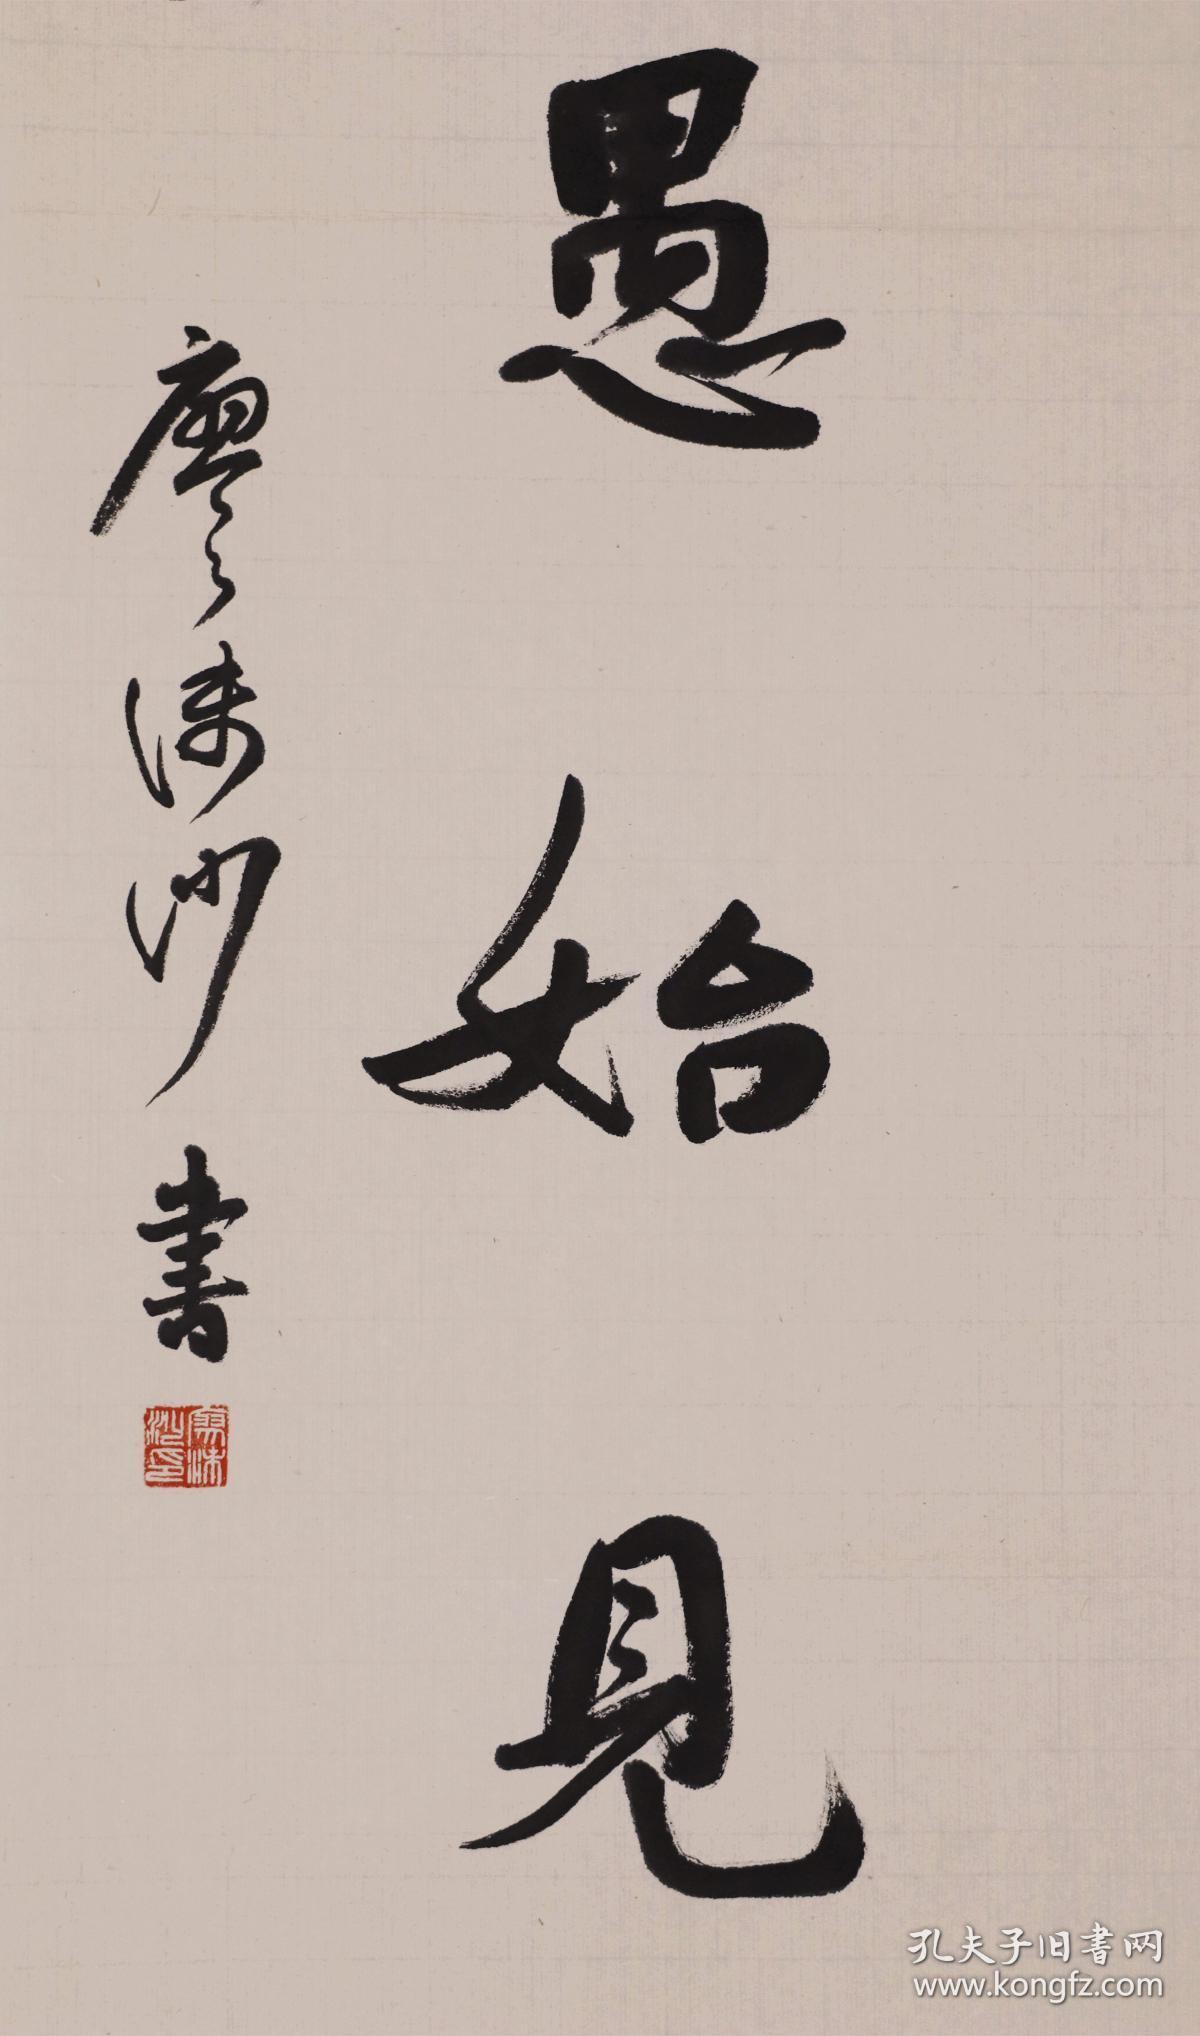 愚始見
廖沫沙書
廖沫沙印
孔夫子旧书网
www.kongfz.com